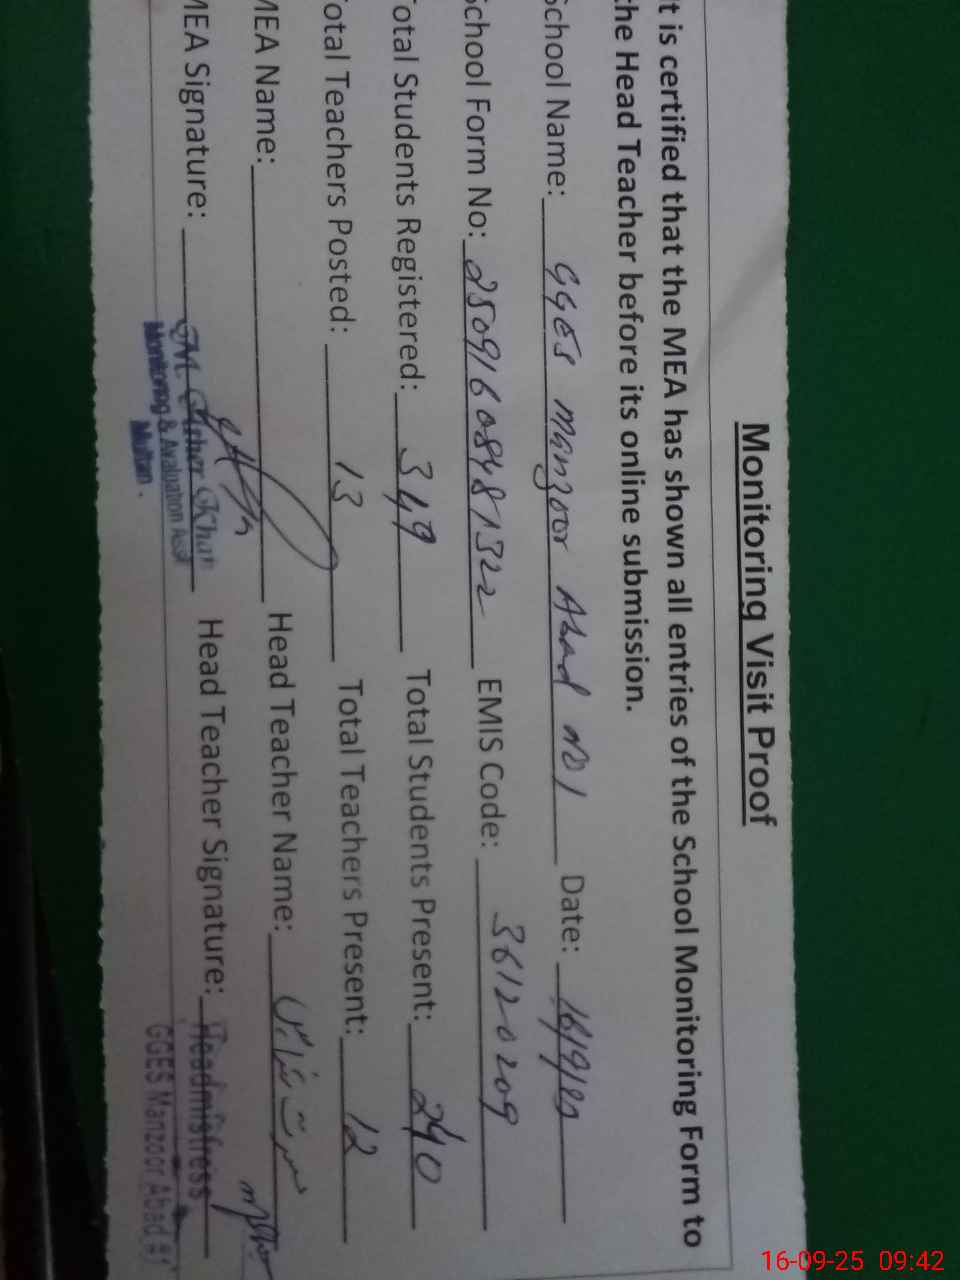 Monitoring Visit Proof
It is certified that the MEA has shown all entries of the School Monitoring Form to
the Head Teacher before its online submission.
School Name: GGES Manzoor Abad NO 1 Date: 16/9/25
School Form No: 25091608481322 EMIS Code: 36120209
Total Students Registered: 349 Total Students Present: 240
Total Teachers Posted: 13 Total Teachers Present: 12
MEA Name: Head Teacher Name:
MEA Signature: Head Teacher Signature:
Monitoring & Avaluation Asst
Multan.
Headmistress
GGES Manzoor Abad #1
16-09-25 09:42